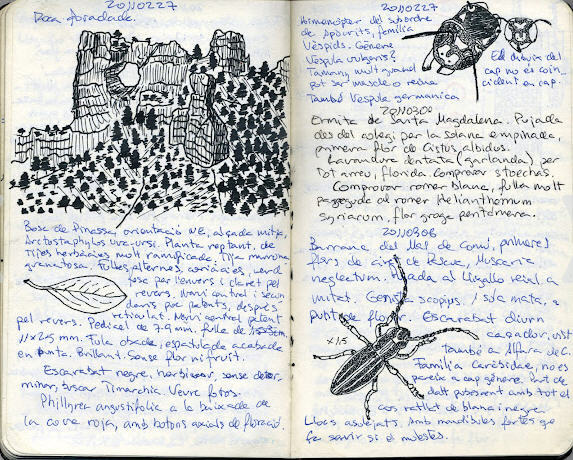 20110227
Roca foradada.
Bosc de Pinassa, orientació NE, alçada mitja,
Arctostaphylos uva-ursi. Planta reptant, de
Tijes herbàcies molt ramificada. Tija marronosa
granatosa. Fulles alternes, coriàcies, verd
fosc per l'envers i claret pel
revers. Nervi central i secun
daris poc patents, després
reticulat. Nervi central patent
pel revers. Pedicel de 7-9 mm. fulla de
11×25 mm. Fulla obade, espatulade acabada
en punta. Brillant. Sense flor ni fruit.
Escarabat negre, herbívor, sense deter-
minar, buscar Timarchia. Veure fotos.
Phillyrea angustifolia a la baixada de
la cova roja, amb botons axials de floració.
20110227
Himenòpter del subordre
de Apòcrits, família
Vèspids. Gènere
Vespula vulgaris?
Tamany molt grand
pot ser muscle o reina
També Vespula germanica
El dibuix del
cap no és coin-
cident en cap.
20110304
Ermita de Santa Magdalena. Pujada
des del colegi per la solana empinada,
primera flor de Cistus albidus.
Lavandura dentata (garlanda) per
Tot arreu, florida. Comprovar stoechas.
Comprovar romer blanc, fulla molt
paregyda al romer Helianthemum
syriacum, flor groga pentàmera.
20110306
Barranc del Mal de Coni, primeres
flors de Pasqua, Muscaria
neglectum. Aliada al Lligallo reial a
unitat. Genista scopius, 1 sola mata, a
punt de florir. Escarabat diürn
caçador, vist
També a Alfara de C.
Família Caràbidae, no es
pareix a cap gènere. Punt de
dalt posterent amb tot el
cos ratllat de blanc i negre.
×1,5
Llocs assolejats. Amb mandíbules fortes que
fa servir si el molestes.